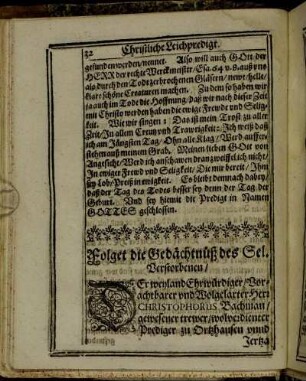 32 Christliche Leichpredigt.
gefunden werden / nennet. Also will auch GOtt der
HERR der rechte Werckmeister / Esa. 64 v. 8. auß uns
als durch den Todt zerbrochenen Gläsern / newe / helle /
klar schöne Creaturen machen. Zu dem so haben wir
ja auch im Tode die Hoffnung / daß wir nach dieser Zeit
mit Christo werden haben die ewige Frewde und Selig-
keit. Wie wir singen: Das ist mein Trost zu aller
Zeit / In allem Creutz und Trawrigkeit: Ich weiß daß
ich am Jüngsten Tag / Ohn alle Klag / Werd auffer-
stehn auß meinem Grab. Meinen lieben GOtt von
Angesicht / Werd ich anschawen dran zweiffel ich nicht /
In ewiger Frewd und Seligkeit / Die mir bereit / Ihm
sey Lob / Preiß in ewigkeit. Es bleibt demnach dabey /
daß der Tag des Todes besser sey denn der Tag der
Geburt. Und sey hiemit die Predigt in Namen
GOTTES geschlossen.
Folget die Gedächtnüß des Sel.
Verstorbenen /
DEr weyland Ehrwürdiger / Vor-
achtbarer und Wolgelarter Herr
CHRISTOPHORUS Bachman /
gewesener trewer / wolverdienter
Prediger zu Ortzhausen unnd
Jertza